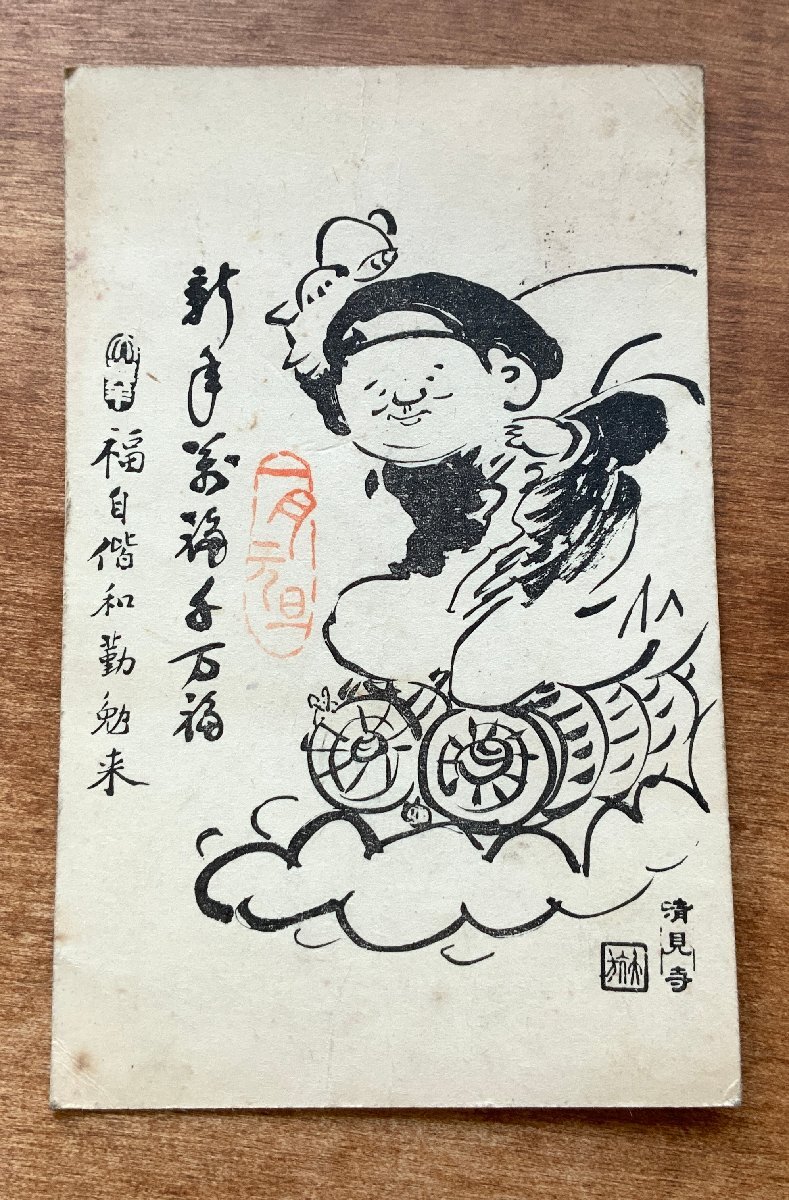 新年萬福千万福
福自偕和勤勉来
一月元旦
清見寺